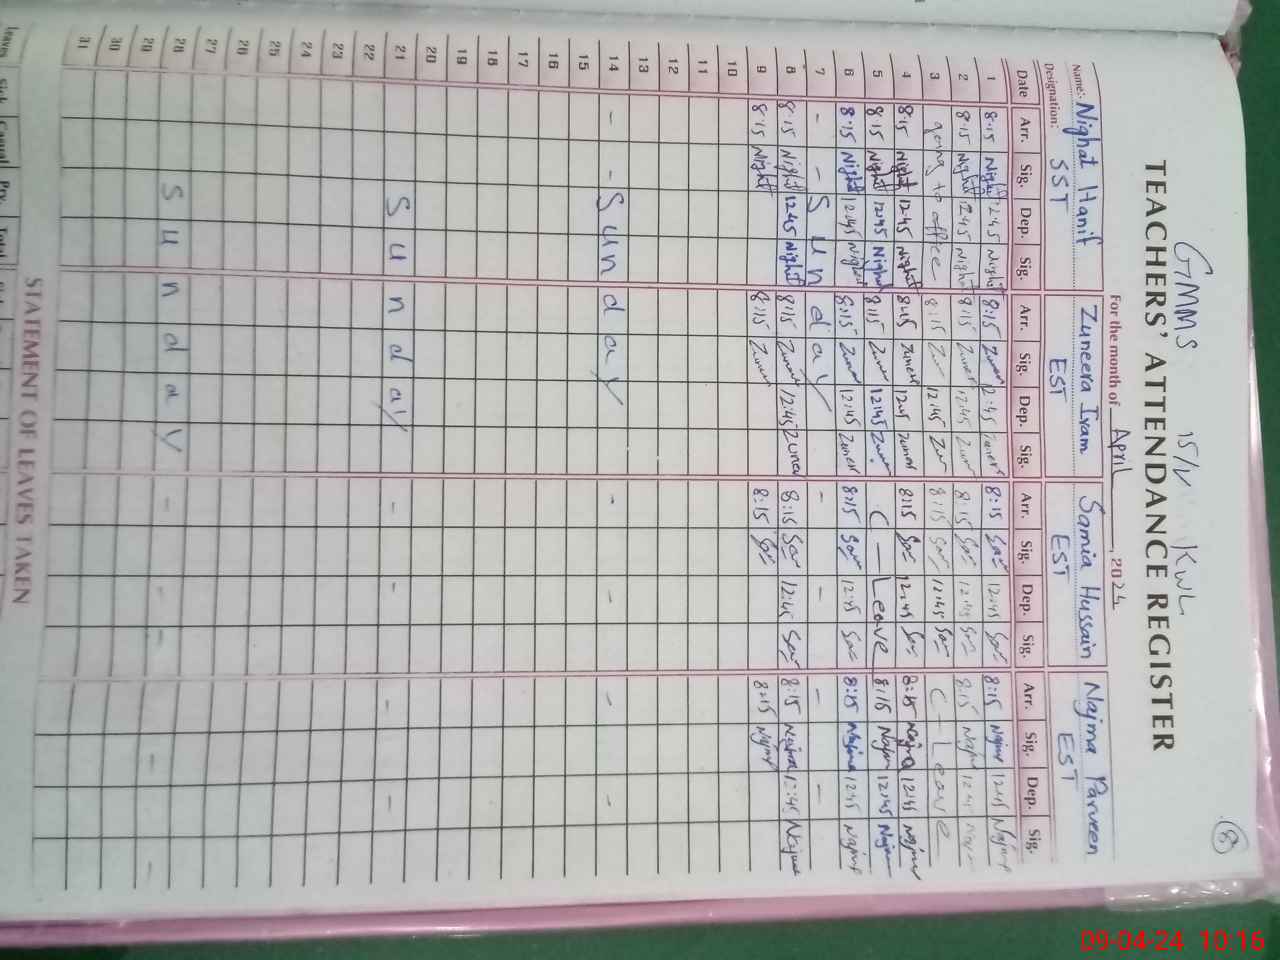 8
GMMS 15/V KWL
TEACHERS' ATTENDANCE REGISTER
For the month of April, 2024
Name:- Nighat Hanif Zuneera Iram Samia Hussain Najma Parveen
Designation: SST EST EST EST
Date Arr. Sig. Dep. Sig. Arr. Sig. Dep. Sig. Arr. Sig. Dep. Sig. Arr. Sig. Dep. Sig.
1 8:15 Nighat 12:45 Nighat 8:15 12:45 8:15 Sa 12:45 Sa 8:15 Najma 12:45 Najma
2 8:15 Nighat 12:45 Nighat 8:15 12:45 8:15 Sa 12:45 Sa 8:15 Najma 12:45 Najma
3 going to office 8:15 Zu 12:45 Zu 8:15 Sa 12:45 Sa C-Leave
4 8:15 Nighat 12:45 Nighat 8:15 12:45 8:15 Sa 12:45 Sa 8:15 Najma 12:45 Najma
5 8:15 Nighat 12:45 Nighat 8:15 12:45 C-Leave 8:15 Najma 12:45 Najma
6 8:15 Nighat 12:45 Nighat 8:15 12:45 8:15 Sa 12:45 Sa 8:15 Najma 12:45 Najma
7 - - Sunday - - - -
8 8:15 Nighat 12:45 Nighat 8:15 12:45 8:15 Sa 12:45 Sa 8:15 Najma 12:45 Najma
9 8:15 Nighat 8:15 8:15 Sa 8:15 Najma
10
11
12
13
14 - - Sunday - - - -
15
16
17
18
19
20
21 Sunday - - - -
22
23
24
25
26
27
28 Sunday - - - - -
29
30
31
STATEMENT OF LEAVES TAKEN
Leaves Sick Casual Prv. Total
09-04-24 10:16